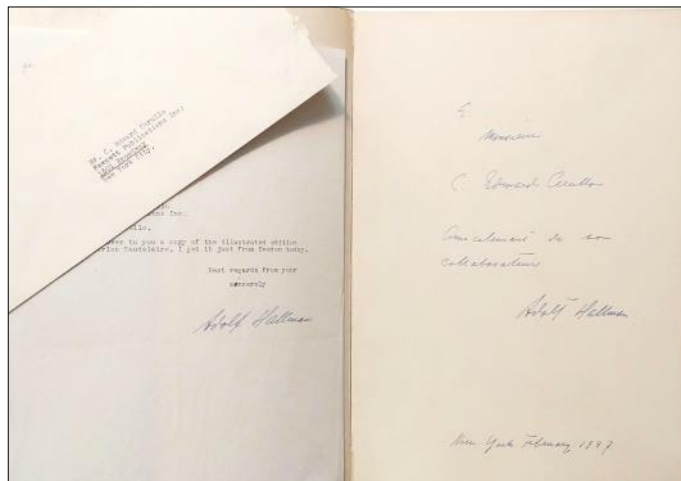 Mr. C. Edward Cerullo
Fawcett Publications Inc:
1501 Broadway
New York City.
Inc.
to you a copy of the illustrated edition
Baudelaire, I got it just from Sweden today.
Best regards from your
sincerely
Adolf Hallman
Monsieur
C. Edward Cerullo
Amicalement de son
collaborateur
Adolf Hallman
New York February 1947